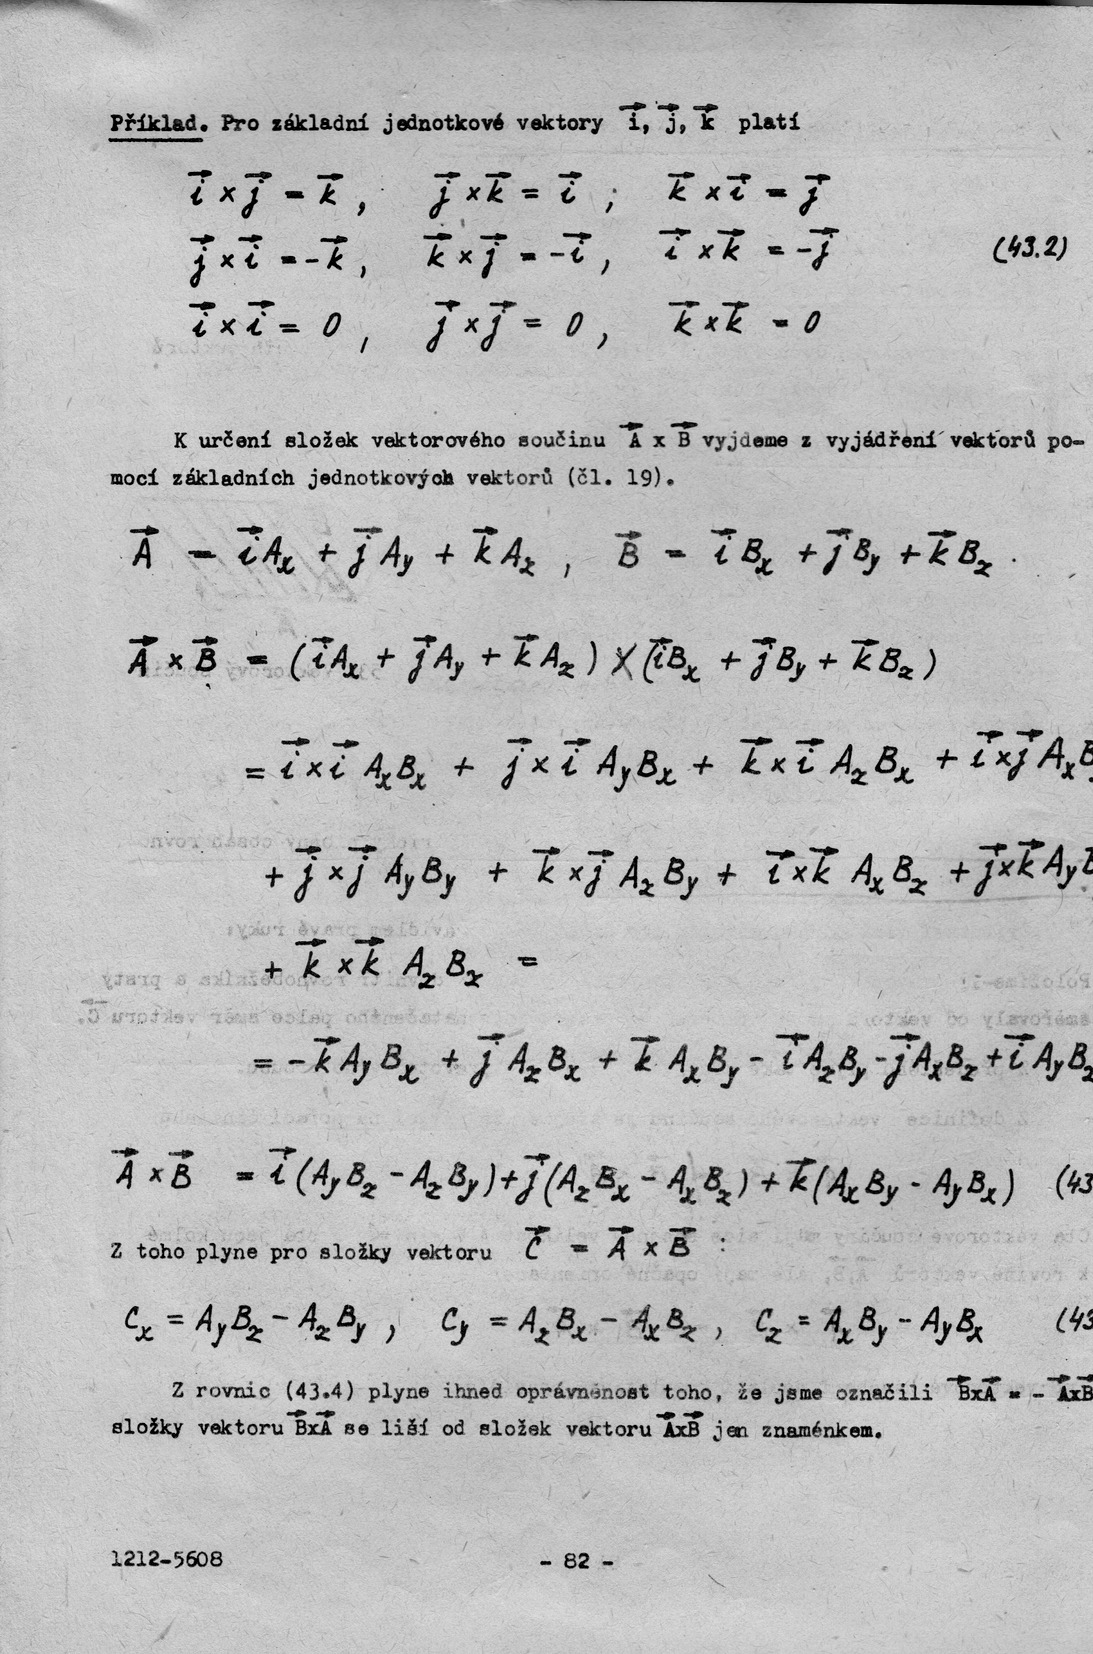 Příklad. Pro základní jednotkové vektory i⃗, j⃗, k⃗ platí
i⃗ × j⃗ = k⃗ , j⃗ × k⃗ = i⃗ ; k⃗ × i⃗ = j⃗
j⃗ × i⃗ = -k⃗ , k⃗ × j⃗ = -i⃗ , i⃗ × k⃗ = -j⃗ (43.2)
i⃗ × i⃗ = 0 , j⃗ × j⃗ = 0 , k⃗ × k⃗ = 0
K určení složek vektorového součinu A⃗ x B⃗ vyjdeme z vyjádření vektorů po-
mocí základních jednotkových vektorů (čl. 19).
A⃗ = i⃗ A_x + j⃗ A_y + k⃗ A_z , B⃗ = i⃗ B_x + j⃗ B_y + k⃗ B_z .
A⃗ × B⃗ = (i⃗ A_x + j⃗ A_y + k⃗ A_z) × (i⃗ B_x + j⃗ B_y + k⃗ B_z)
= i⃗ × i⃗ A_x B_x + j⃗ × i⃗ A_y B_x + k⃗ × i⃗ A_z B_x + i⃗ × j⃗ A_x B
+ j⃗ × j⃗ A_y B_y + k⃗ × j⃗ A_z B_y + i⃗ × k⃗ A_x B_z + j⃗ × k⃗ A_y B
+ k⃗ × k⃗ A_z B_z =
= -k⃗ A_y B_x + j⃗ A_z B_x + k⃗ A_x B_y - i⃗ A_z B_y - j⃗ A_x B_z + i⃗ A_y B_z
A⃗ × B⃗ = i⃗ (A_y B_z - A_z B_y) + j⃗ (A_z B_x - A_x B_z) + k⃗ (A_x B_y - A_y B_x) (43
Z toho plyne pro složky vektoru C⃗ = A⃗ × B⃗ :
C_x = A_y B_z - A_z B_y , C_y = A_z B_x - A_x B_z , C_z = A_x B_y - A_y B_x (43
Z rovnic (43.4) plyne ihned oprávněnost toho, že jsme označili B⃗xA⃗ = - A⃗xB⃗
složky vektoru B⃗xA⃗ se liší od složek vektoru A⃗xB⃗ jen znaménkem.
1212-5608 - 82 -